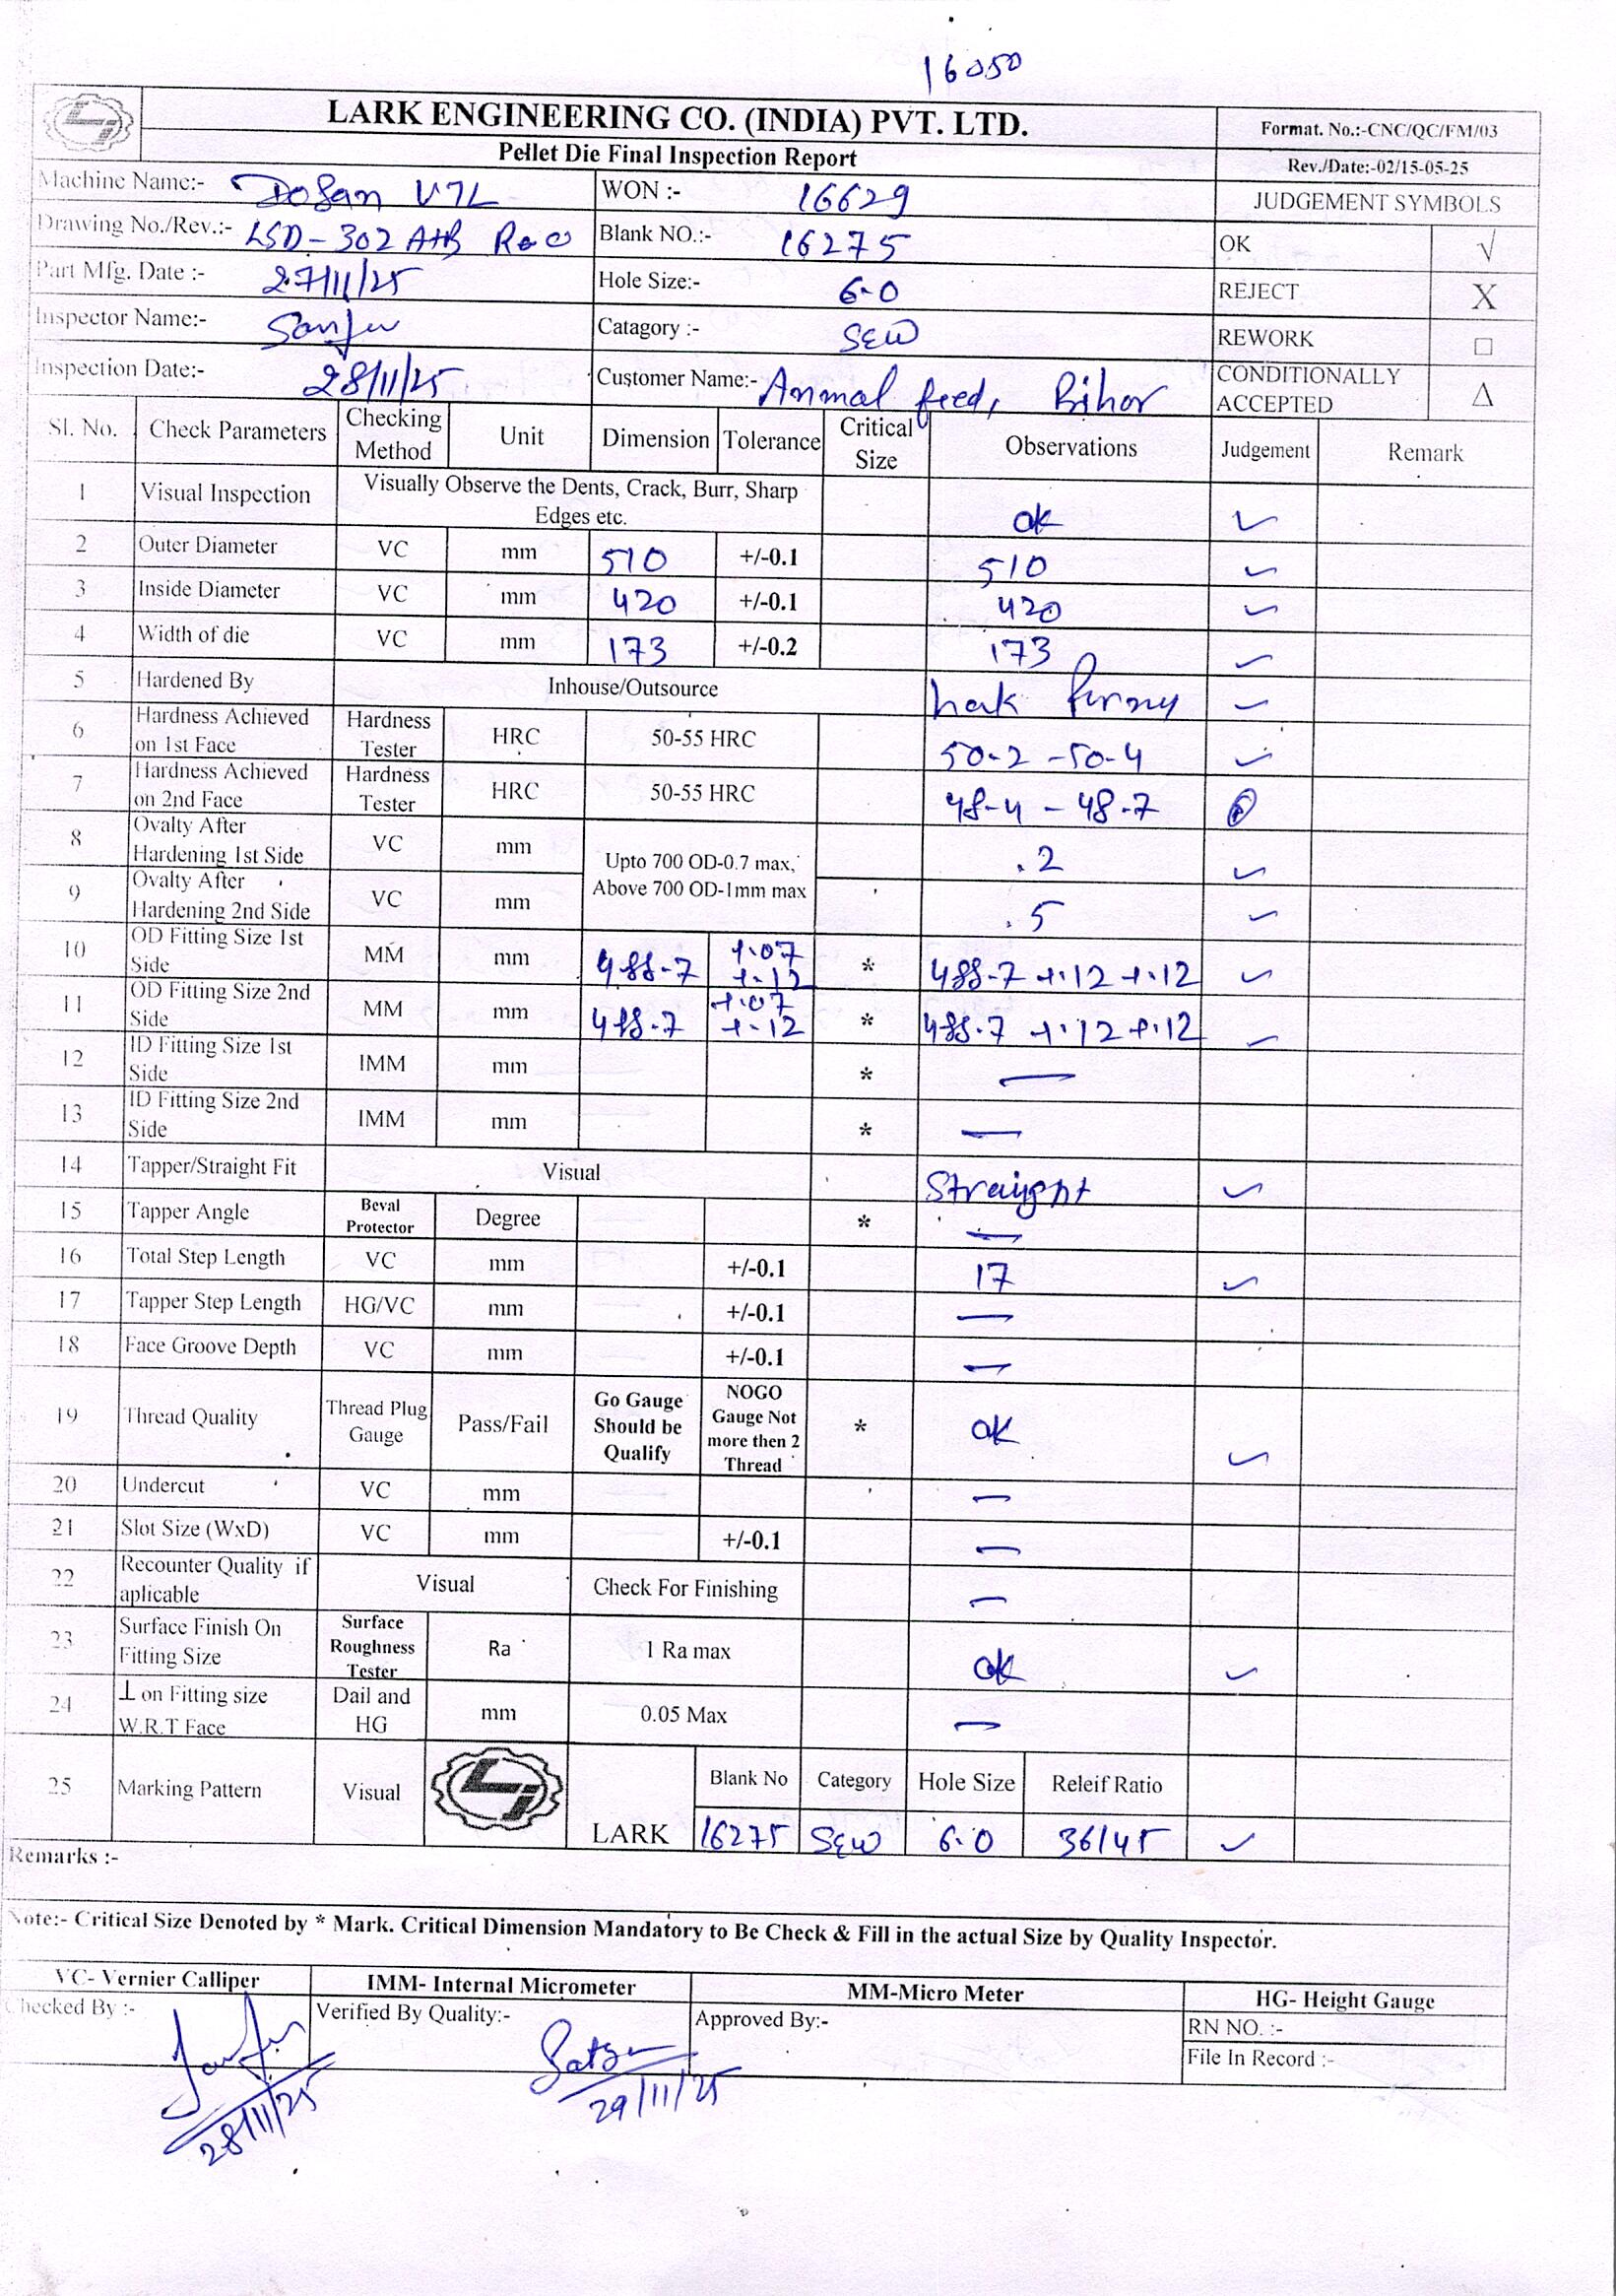 16050
LARK ENGINEERING CO. (INDIA) PVT. LTD.
Format. No.:-CNC/QC/FM/03
Pellet Die Final Inspection Report
Rev./Date:-02/15-05-25
Machine Name:- Dosan VTL WON :- 16629 JUDGEMENT SYMBOLS
Drawing No./Rev.:- LSD-302 A+B R.0 Blank NO.:- 16275 OK √
Part Mfg. Date :- 27/11/25 Hole Size:- 6.0 REJECT X
Inspector Name:- Sanju Catagory :- SEW REWORK □
Inspection Date:- 28/11/25 Customer Name:- Animal feed, Bihar CONDITIONALLY ACCEPTED Δ
Sl. No. Check Parameters Checking Method Unit Dimension Tolerance Critical Size Observations Judgement Remark
1 Visual Inspection Visually Observe the Dents, Crack, Burr, Sharp Edges etc. ok ✓
2 Outer Diameter VC mm 510 +/-0.1 510 ✓
3 Inside Diameter VC mm 420 +/-0.1 420 ✓
4 Width of die VC mm 173 +/-0.2 173 ✓
5 Hardened By Inhouse/Outsource ✓
6 Hardness Achieved on 1st Face Hardness Tester HRC 50-55 HRC 50-2 -50-4 ✓
7 Hardness Achieved on 2nd Face Hardness Tester HRC 50-55 HRC 48-4 - 48-7
8 Ovalty After Hardening 1st Side VC mm Upto 700 OD-0.7 max, Above 700 OD-1mm max .2 ✓
9 Ovalty After Hardening 2nd Side VC mm .5 ✓
10 OD Fitting Size 1st Side MM mm 488-7 +.07 +.12 * 488-7 +.12 +.12 ✓
11 OD Fitting Size 2nd Side MM mm 488-7 +.07 +.12 * 488-7 +.12 +.12 ✓
12 ID Fitting Size 1st Side IMM mm * —
13 ID Fitting Size 2nd Side IMM mm * —
14 Tapper/Straight Fit Visual Straight ✓
15 Tapper Angle Beval Protector Degree * —
16 Total Step Length VC mm +/-0.1 17 ✓
17 Tapper Step Length HG/VC mm +/-0.1 —
18 Face Groove Depth VC mm +/-0.1 —
19 Thread Quality Thread Plug Gauge Pass/Fail Go Gauge Should be Qualify NOGO Gauge Not more then 2 Thread * ok ✓
20 Undercut VC mm —
21 Slot Size (WxD) VC mm +/-0.1 —
22 Recounter Quality if aplicable Visual Check For Finishing —
23 Surface Finish On Fitting Size Surface Roughness Tester Ra 1 Ra max ok ✓
24 ⊥ on Fitting size W.R.T Face Dail and HG mm 0.05 Max —
25 Marking Pattern Visual LARK Blank No Category Hole Size Releif Ratio
16275 SEW 6.0 36/45 ✓
Remarks :-
Note:- Critical Size Denoted by * Mark. Critical Dimension Mandatory to Be Check & Fill in the actual Size by Quality Inspector.
VC- Vernier Calliper IMM- Internal Micrometer MM-Micro Meter HG- Height Gauge
Checked By :- Verified By Quality:- Approved By:- RN NO. :-
File In Record :-
28/11/25 29/11/25